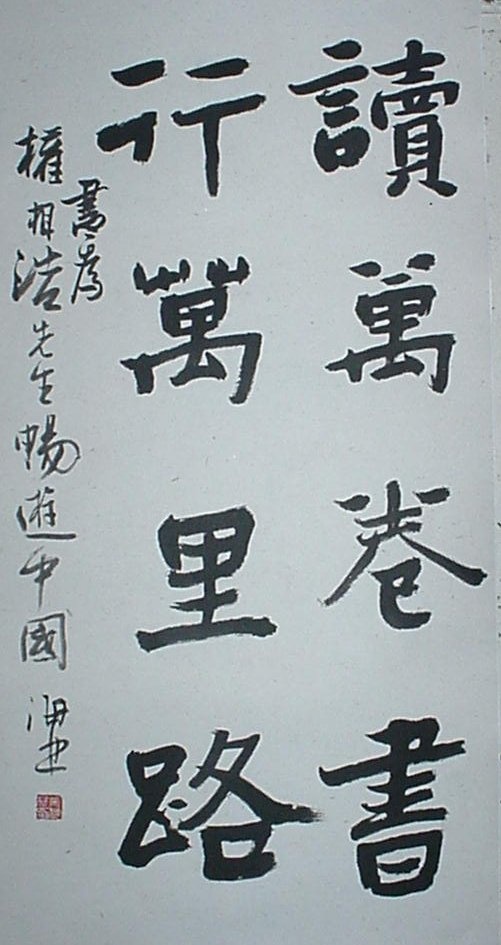 讀萬卷書
行萬里路
書為
權相浩先生暢遊中國